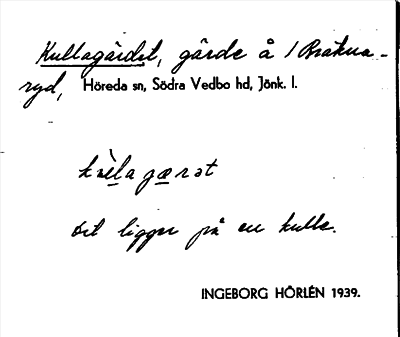 Kullagärdet, gärde å 1 Bråkna-
ryd, Höreda sn, Södra Vedbo hd, Jönk. l.
kùlagærət
det ligger på en kulle.
INGEBORG HÖRLÉN 1939.